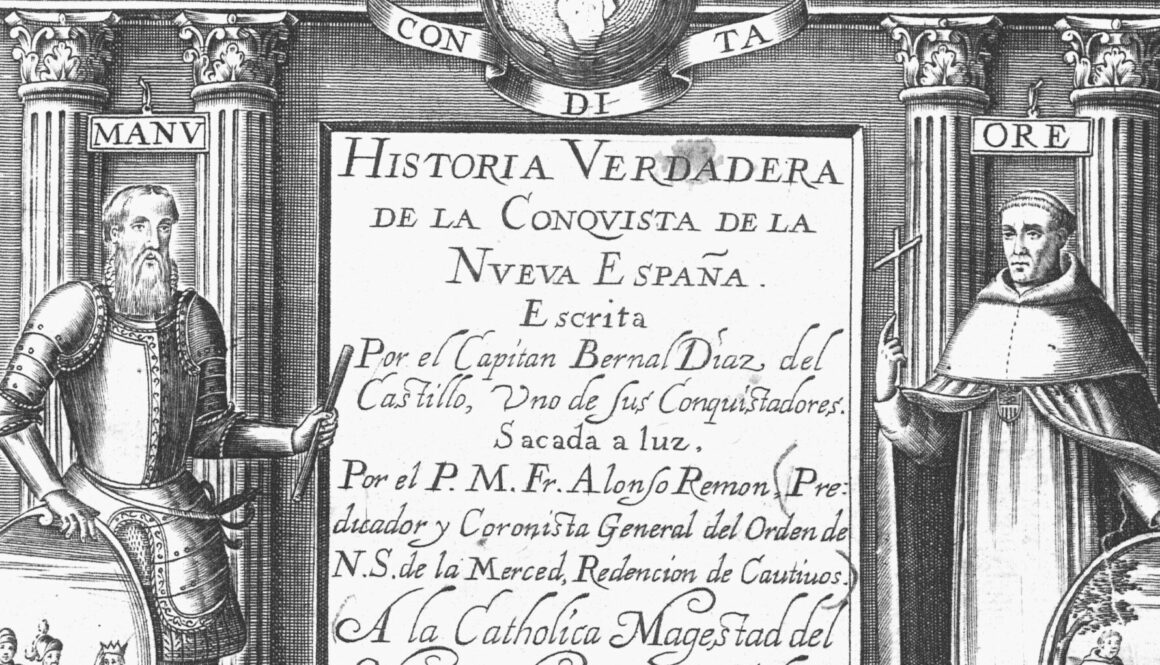 CON
DI
TA
MANV
ORE
HISTORIA VERDADERA
DE LA CONQVISTA DE LA
NVEVA ESPAÑA.
Escrita
Por el Capitan Bernal Diaz, del
Castillo, Vno de sus Conquistadores.
Sacada a luz,
Por el P. M. Fr. Alonso Remon, Pre-
dicador y Coronista General del Orden de
N.S. de la Merced, Redencion de Cautiuos.
A la Catholica Magestad del